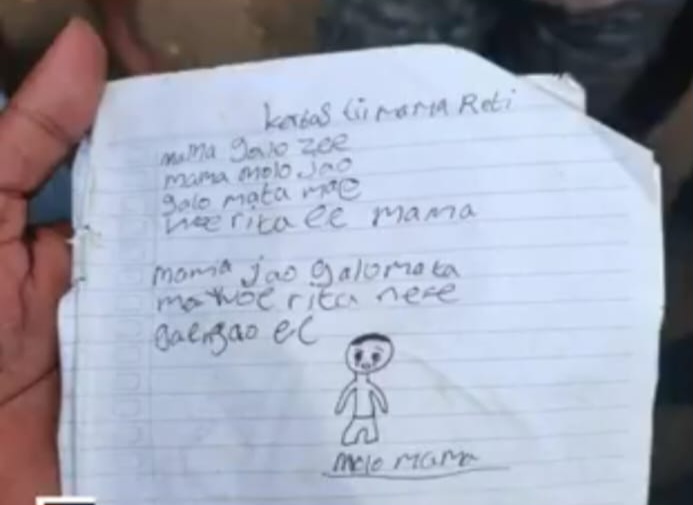 Kertas tii mama Reti
mama galo zee
mama molo jao
galo mata mae
woe rita ee mama
mama jao galo mata
mae woe rita ne'e
gae ngao ee
molo mama